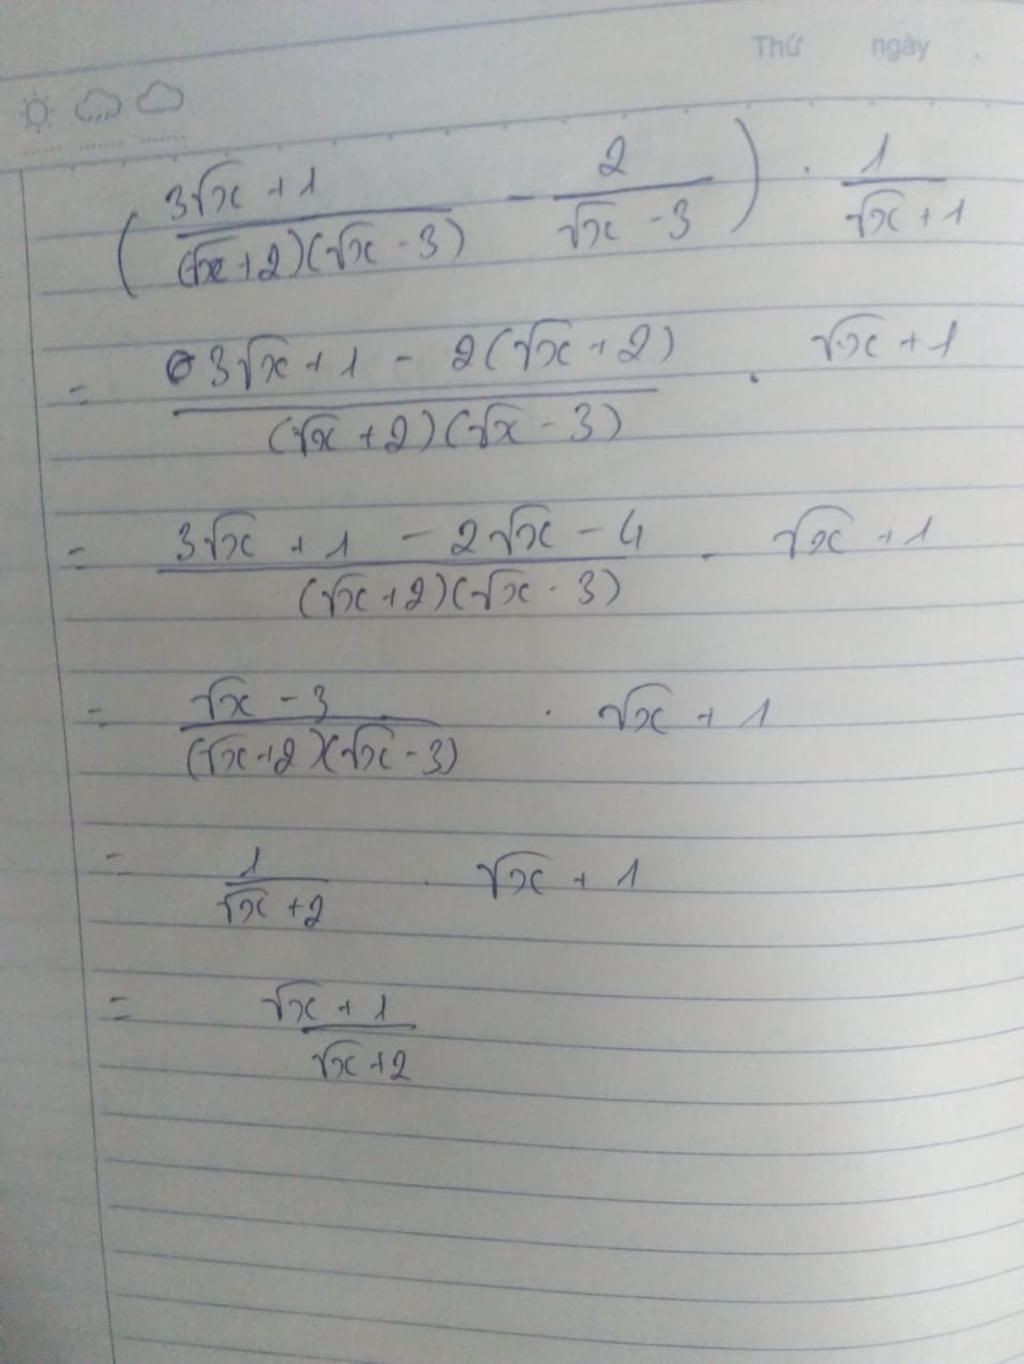 Thứ ngày
(\frac{3\sqrt{x} + 1}{(\sqrt{x}+2)(\sqrt{x} - 3)} - \frac{2}{\sqrt{x} - 3}) \cdot \frac{1}{\sqrt{x} + 1}
= \frac{3\sqrt{x} + 1 - 2(\sqrt{x} + 2)}{(\sqrt{x} + 2)(\sqrt{x} - 3)} \cdot \sqrt{x} + 1
= \frac{3\sqrt{x} + 1 - 2\sqrt{x} - 4}{(\sqrt{x} + 2)(\sqrt{x} - 3)} \cdot \sqrt{x} + 1
= \frac{\sqrt{x} - 3}{(\sqrt{x} + 2)(\sqrt{x} - 3)} \cdot \sqrt{x} + 1
= \frac{1}{\sqrt{x} + 2} \cdot \sqrt{x} + 1
= \frac{\sqrt{x} + 1}{\sqrt{x} + 2}